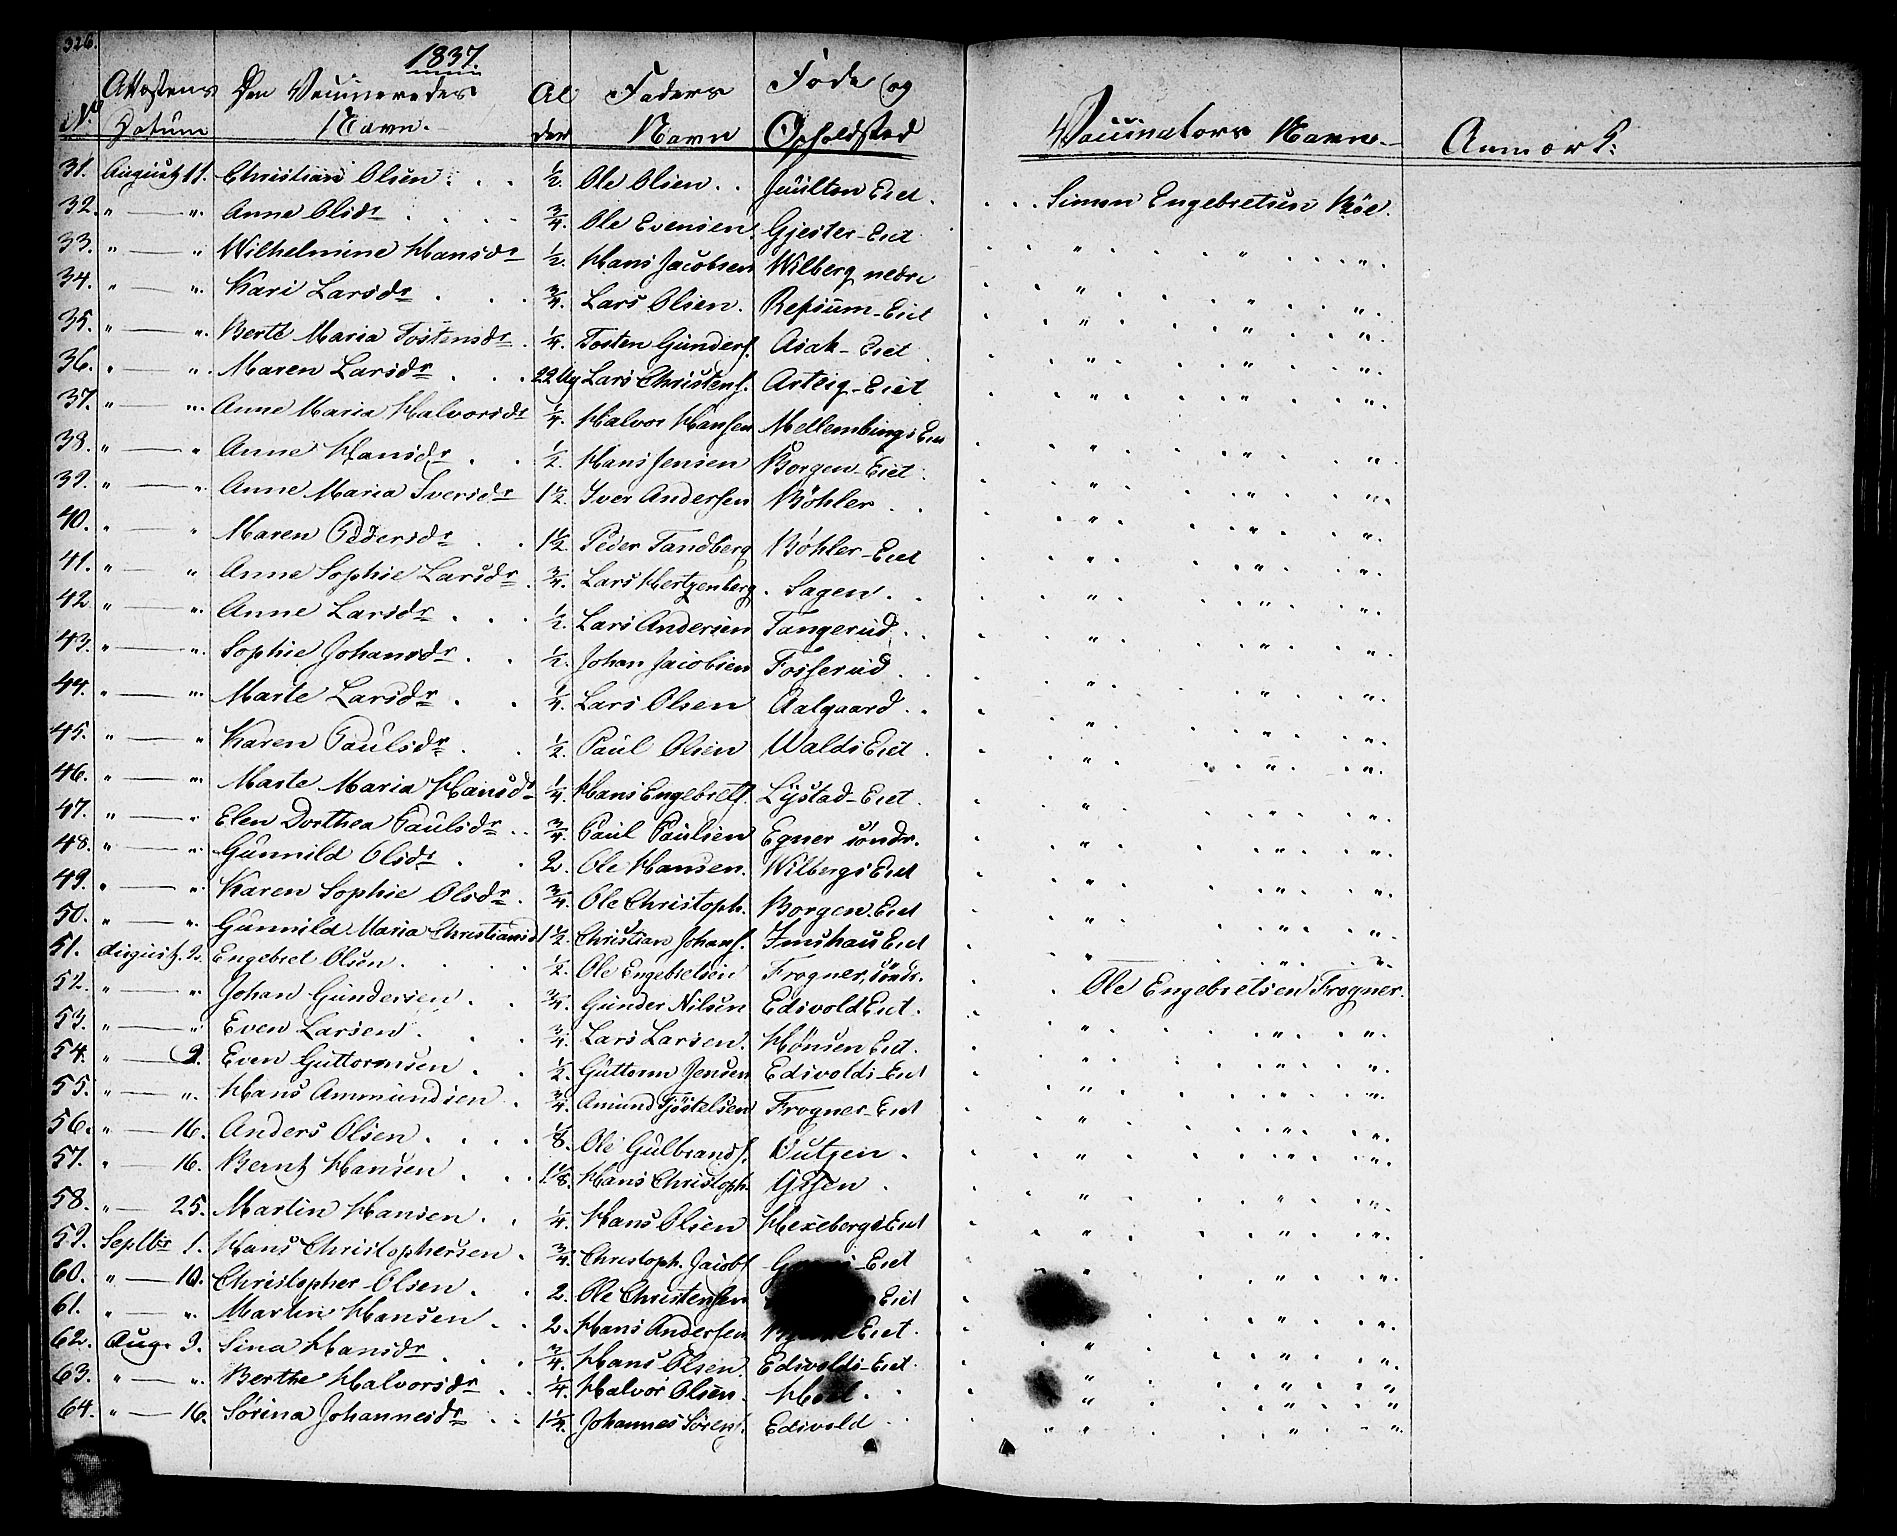 326.
1837.
No Attestens Datum Den Vaccineredes Navn. Alder Faders Navn Føde og Opholdsted Vaccinators Navn. Anmærk:
31. August 11. Christian Olsen . . . ½. Ole Olsen . . Eiet . . . Simen Engebretsen Böe.
32. " — ". Anne Olsdr . . . . ¾. Ole Evensen. Gjester-Eiet . " . . " . . . . ".
33. " — " Wilhelmine Hansdr ½. Hans Jacobsen Wilberg nedre . . " . . " . . ".
34. " — ". Kari Larsdr . . . ¾. Lars Olsen. Refsum-Eiet . . " . . " . . ".
35. " — ". Berte Maria Tostensdr. ¼. Tosten Gunders. Asak-Eiet . . " . . " . . ".
36. " — ". Maren Larsdr . . . 22 Ug Lars Christens. Arteig-Eiet . " . . " . . ".
37. " — ". Anne Maria Halvorsdr ¼. Halvor Hansen Mellembugs Eiet . " . . " . . ".
38. " — " Anne Hansdr . . ½. Hans Jensen Borgen-Eiet. . " . . " . . ".
39. " — ". Anne Maria Iversdr 1½. Iver Andersen Böhler . . . " . . " . . ".
40. " — " Maren Pedersdr . . 1½. Peder Tandberg Böhler-Eiet . " . . " . . ".
41. " — " Anne Sophie Larsdr . ¾. Lars Hertzenberg. Sagen . . . " . . " . . ".
42 " — ". Anne Larsdr . . . ½. Lars Andersen Tangerud . . . " . . " . . ".
43. " — ". Sophie Johansdr . . ½. Johan Jacobsen Fosserud . . . " . . " . . ".
44. " — ". Marte Larsdr . . ¼. Lars Olsen Aalgaard . . . " . . " . . ".
45. " — " Karen Paulsdr . . ½. Paul Olsen Walds Eiet . . " . . " . . ".
46. " — " Marte Maria Hansdr ¼. Hans Engebrets. Lystad-Eiet . . " . . " . . ".
47. " — " Elen Dorthea Paulsdr . . ¾. Paul Paulsen Egner söndr. . " . . " . . ".
48. " — ". Gunnild Olsdr . . 2. Ole Hansen. Wilbergs Eiet . " . . " . . ".
49. " — ". Karen Sophie Olsdr . ¾. Ole Christoph. Borgen Eiet . " . . " . . ".
50. " — ". Gunnild Maria Christiansd. 1½. Christian Johans. Imshau Eiet . " . . " . . ".
51. August. 2. Engebret Olsen . . . . ½. Ole Engebretsen Frogner, söndr. . Ole Engebretsen Frogner.
52. " — " Johan Gundersen . . ¾. Gunder Nilsen Edsvold Eiet . . " . . " . . ".
53. " — " Even Larsen . . . ¾. Lars Larsen. Hönsen Eiet. . " . . " . . ".
54. " — 9. Even Guttormsen . . ½. Guttorm Jensen Edsvolds-Eiet . " . . " . . ".
55. " — ". Hans Ammundsen . ¾. Amund Kjöstelsen Frogner-Eiet . " . . " . . ".
56. " — 16. Anders Olsen . . . . ⅛. Ole Gulbrands. . . " . . " . . ".
57. " — 16. Berntz Hansen . . . 1⅛. Hans Christoph. . . " . . " . . ".
58. " — 25. Martin Hansen . . ¼. Hans Olsen Hexebergs Eiet . " . . " . . ".
59. Septbr 1. Hans Christophersen . ¾. Christoph. Jacobs. Eiet . " . . " . . ".
60. " — 10. Christopher Olsen . . 2. Ole Christensen Eiet . . " . . ".
61. " — ". Martin Hansen . . 2. Hans Andersen Eiet . . " . . " . . ".
62. Aug. 9. Sina Hansdr . . . ¾. Hans Olsen. Edsvolds-Eiet . " . . " . . "
63. " — ". Berthe Halvorsdr . . ¼. Halvor Olsen. . . " . . " . . "
64. " — 16. Sörina Johannesdr . . 1¼. Johannes Sörens. Edsvold . . . " . . " . . ".